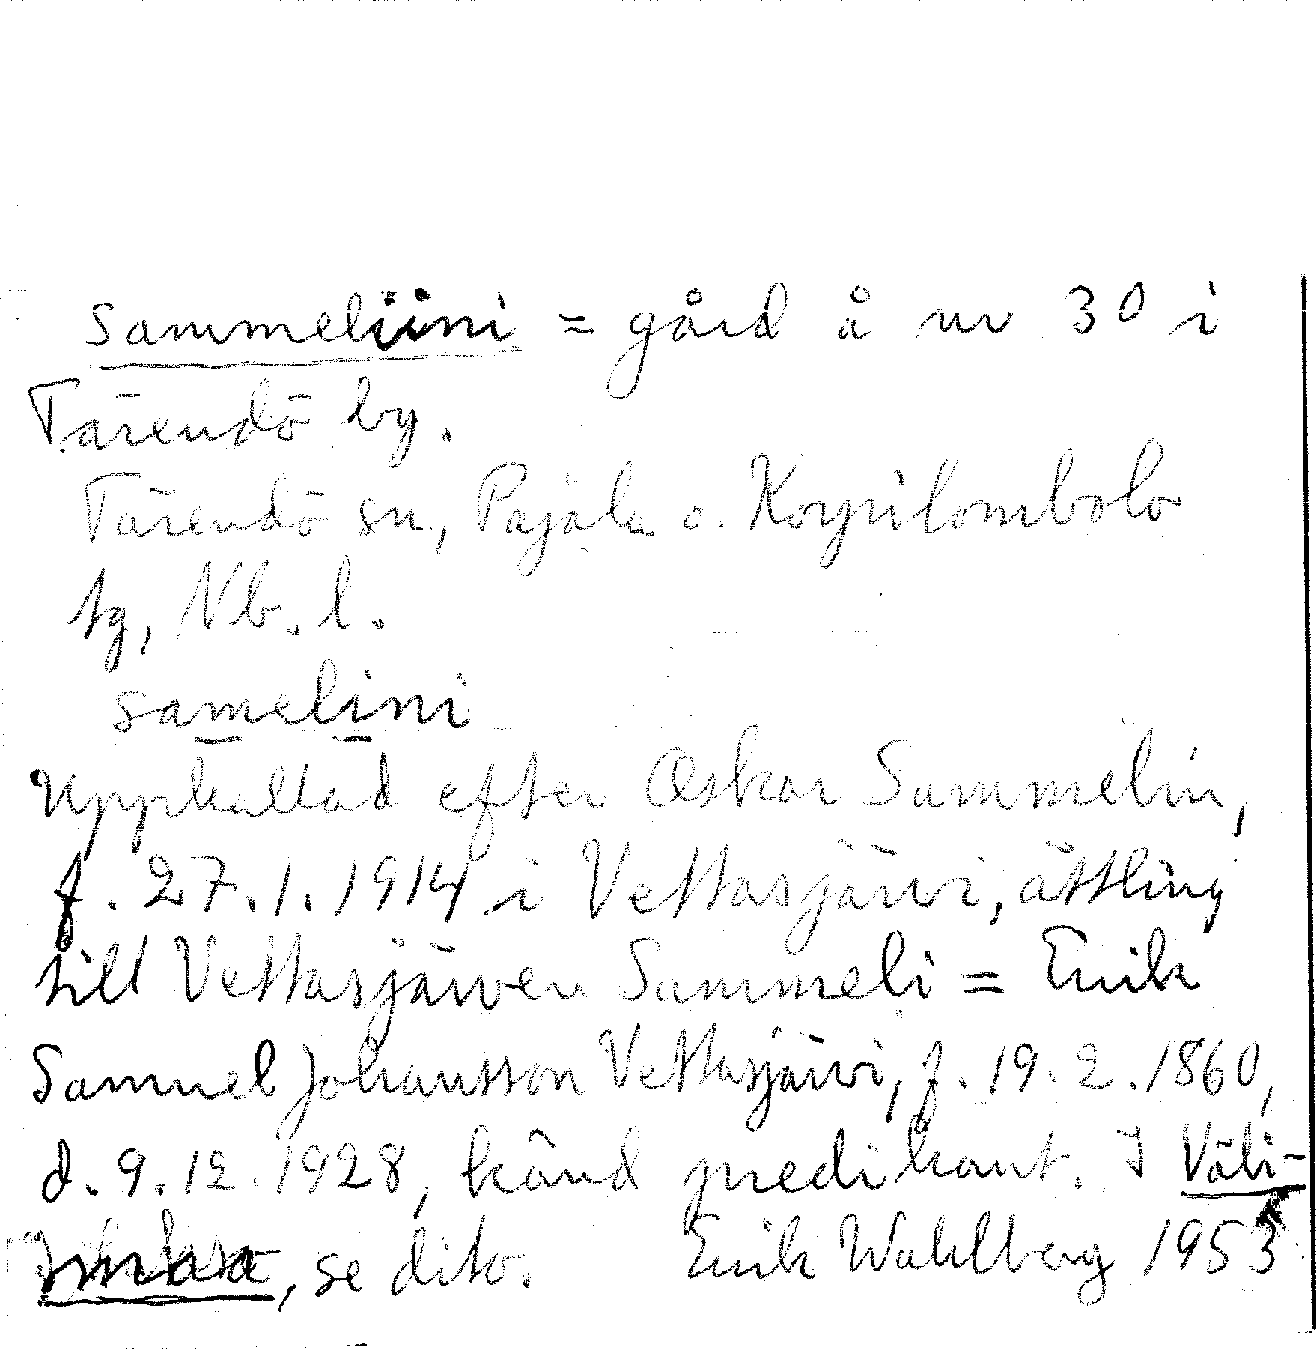 Sammeliini = gård å nr 30 i
Tärendö by.
Tärendö sn, Pajala o. Korpilombolo
tg, Nb. l.
samelini
Uppkallad efter Oskar Sammelin,
f. 27.1.1914 i Vettasjärvi, ättling
till Vettasjärven Sammeli = Erik
Samuel Johansson Vettasjärvi, f. 19.2.1860,
d. 9.12.1928, känd predikant. I Väli-
maa, se dito. Erik Wahlberg 1953